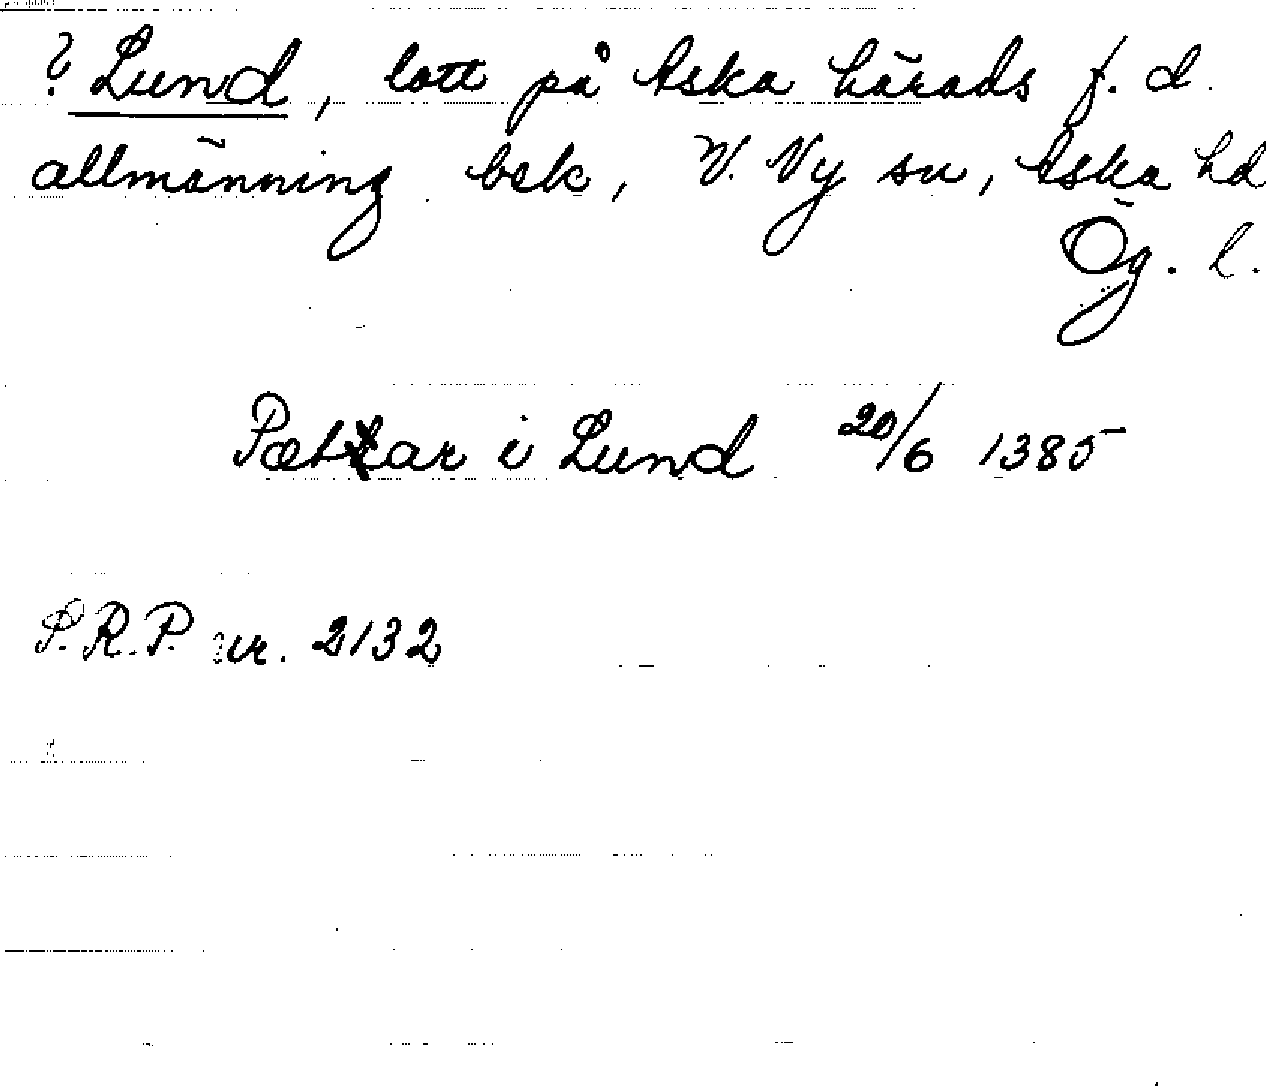 ? Lund, lott på Aska härads f. d.
allmänning bek, V. Ny sn, Aska hd
Ög. l.
Pætar i Lund 20/6 1385
S.R.P. nr. 2132